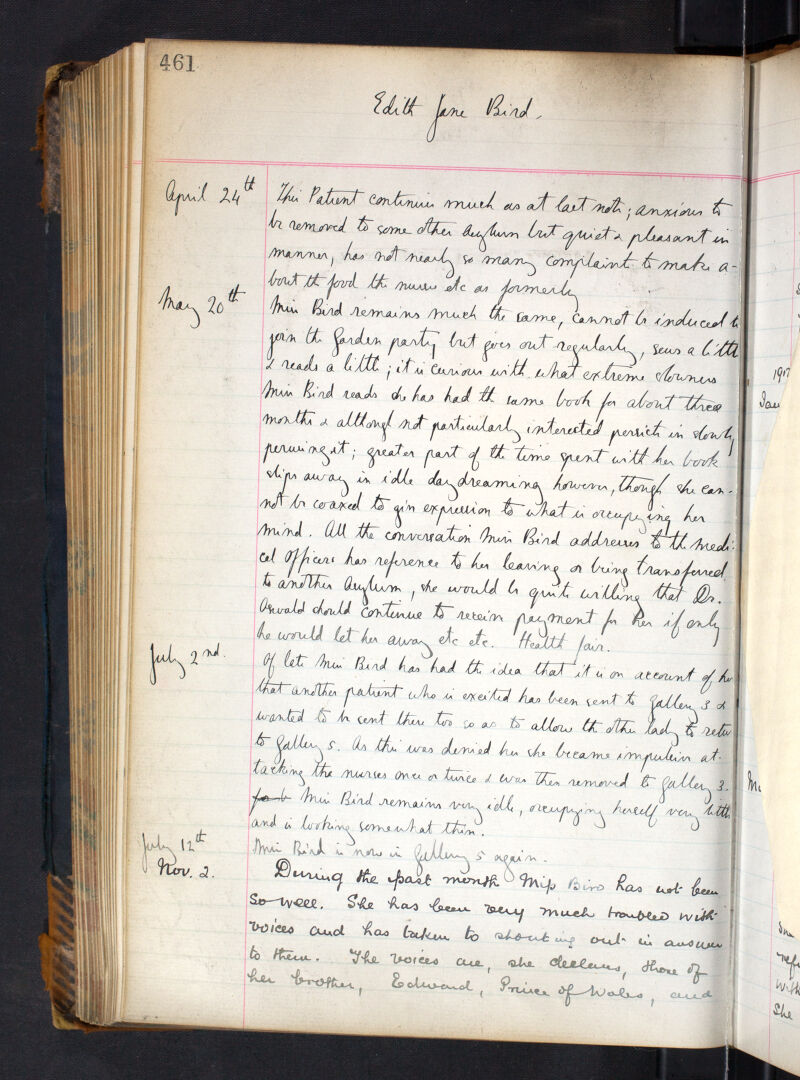 461
Edith Jane Bird.
April 24th This Patient continues much as at last note; anxious to
be removed to some other Asylum but quiet & pleasant in
manner, has not nearly so many complaints to make a-
bout the food the nurses etc as formerly
May 20th Miss Bird remains much the same, cannot be induced to
join the Garden party but goes out regularly, sews a little
& reads a little; it is curious with what extreme slowness
Miss Bird reads she has had the same book for about three
months & although not particularly interested persists in slowly
perusing it; greater part of the time spent with her book
slips away in idle day dreaming however, though she can-
not be coaxed to give expression to what is occupying her
mind. All the conversation Miss Bird addresses to the medi-
cal officers has reference to her leaving or being transferred
to another Asylum, she would be quite willing that Dr.
Oswald should continue to receive payment for her if only
he would let her away etc etc. Health fair.
July 2nd. Of late Miss Bird has had the idea that it is on account of her
that another patient who is excited has been sent to Gallery 3 &
wanted to be sent there too so as to allow the other lady to retur
to Gallery 5. As this was denied her she became impulsive at-
tacking the nurses once or twice & was then removed to Gallery 3.
Miss Bird remains very idle, occupying herself very little
and is looking somewhat thin.
July 12th Miss Bird is now in Gallery 5 again.
Nov. 2. During the past month Miss Bird has not been
so well. She has been very much troubled with
voices and has taken to shouting out in answer
to them. The voices are, she declares, those of
her brother, Edward, Prince of Wales, and
Jan
She